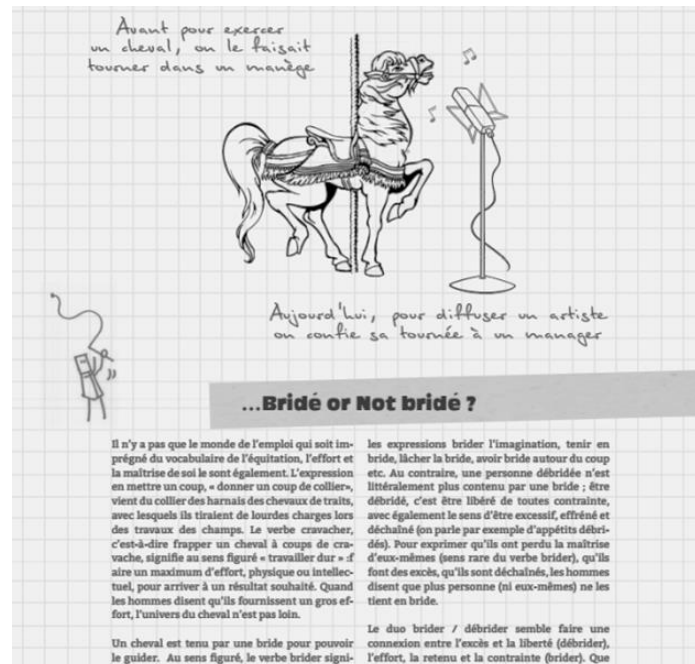 Avant pour exercer
un cheval, on le faisait
tourner dans un manège
Aujourd'hui, pour diffuser un artiste
on confie sa tournée à un manager
...Bridé or Not bridé ?
Il n'y a pas que le monde de l'emploi qui soit im-
prégné du vocabulaire de l'équitation, l'effort et
la maîtrise de soi le sont également. L'expression
en mettre un coup, « donner un coup de collier»,
vient du collier des harnais des chevaux de traits,
avec lesquels ils tiraient de lourdes charges lors
des travaux des champs. Le verbe cravacher,
c'est-à-dire frapper un cheval à coups de cra-
vache, signifie au sens figuré « travailler dur » :f
aire un maximum d'effort, physique ou intellec-
tuel, pour arriver à un résultat souhaité. Quand
les hommes disent qu'ils fournissent un gros ef-
fort, l'univers du cheval n'est pas loin.
Un cheval est tenu par une bride pour pouvoir
le guider. Au sens figuré, le verbe brider signi-
les expressions brider l'imagination, tenir en
bride, lâcher la bride, avoir bride autour du coup
etc. Au contraire, une personne débridée n'est
littéralement plus contenu par une bride ; être
débridé, c'est être libéré de toutes contrainte,
avec également le sens d'être excessif, effréné et
déchaîné (on parle par exemple d'appétits débri-
dés). Pour exprimer qu'ils ont perdu la maîtrise
d'eux-mêmes (sens rare du verbe brider), qu'ils
font des excès, qu'ils sont déchaînés, les hommes
disent que plus personne (ni eux-mêmes) ne les
tient en bride.
Le duo brider / débrider semble faire une
connexion entre l'excès et la liberté (débrider),
l'effort, la retenu et la contrainte (brider). Que